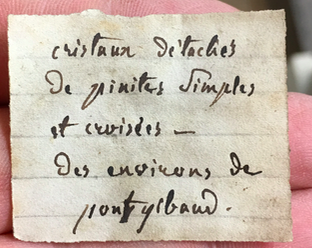 cristaux détachés
de pinites simples
et croisées —
des environs de
pontgibaud.